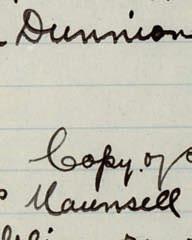 Dunnion
Copy of
Maunsell